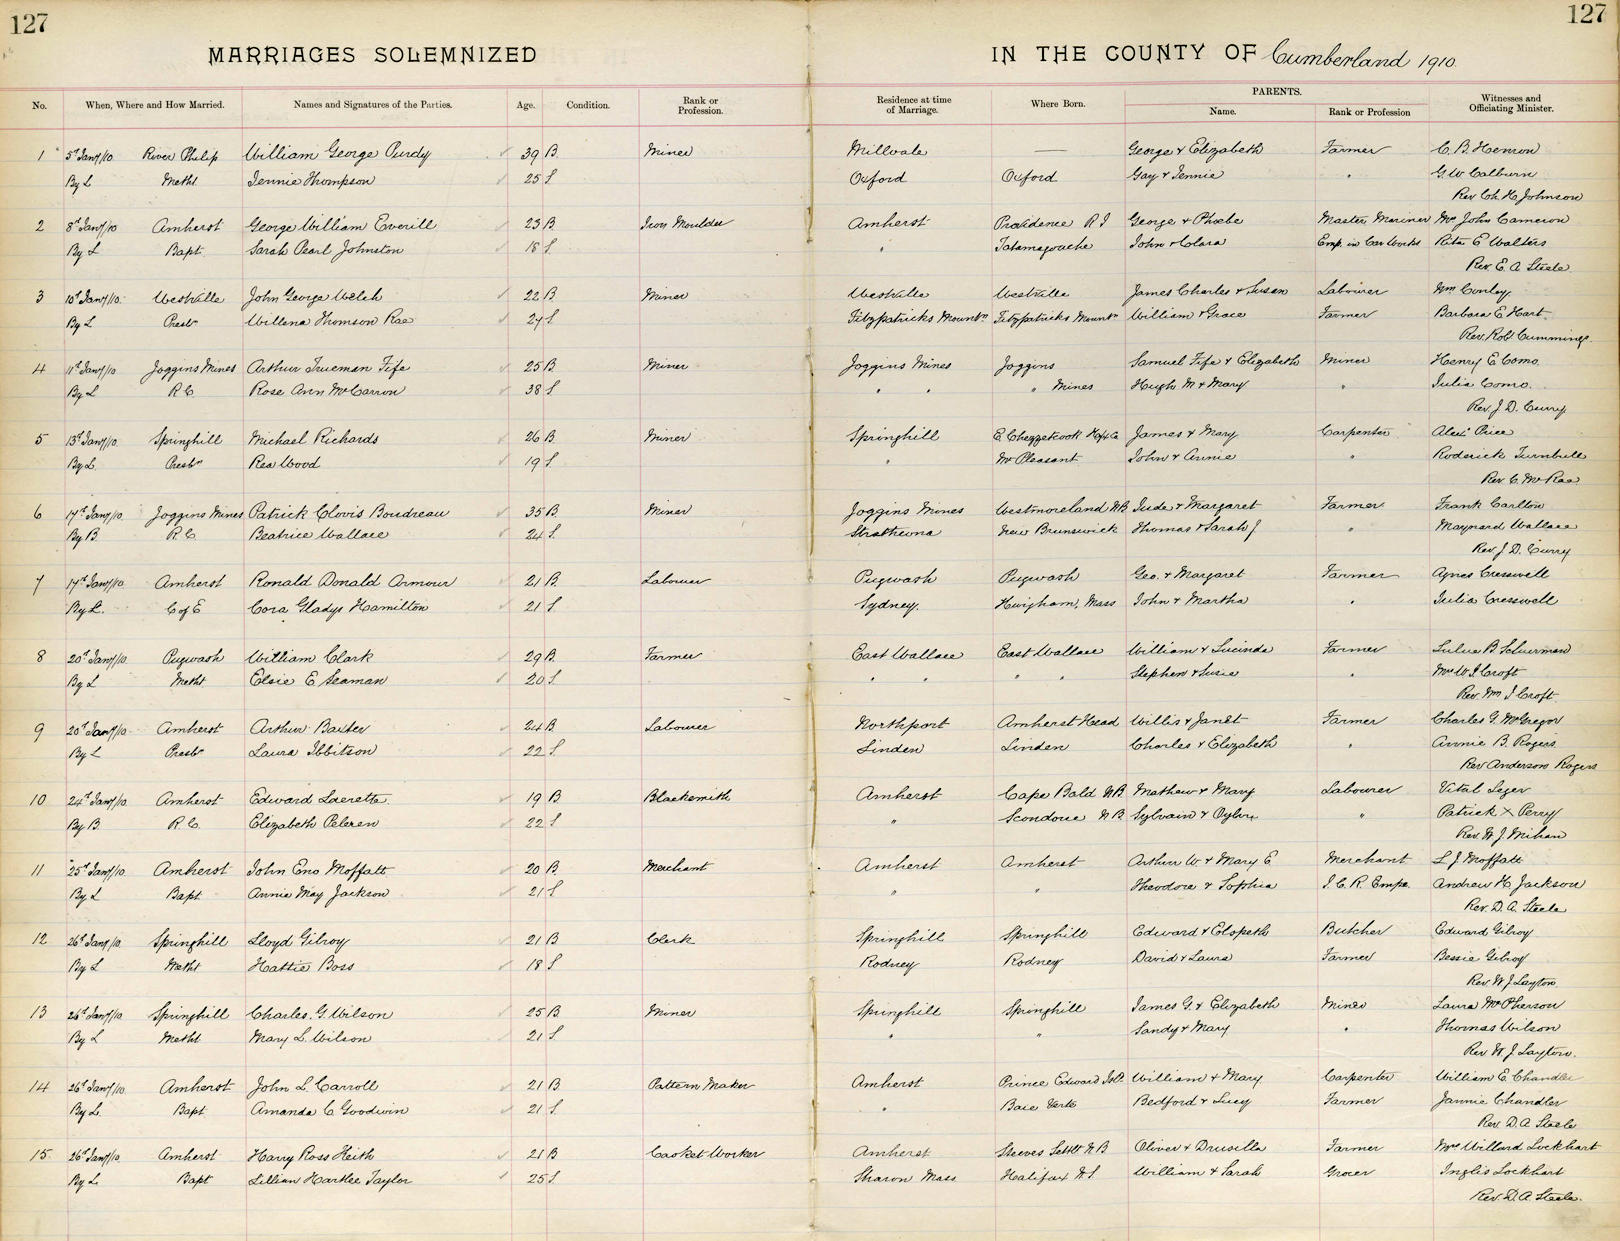 127
127
MARRIAGES SOLEMNIZED
IN THE COUNTY OF Cumberland 1910.
No. When, Where and How Married. Names and Signatures of the Parties. Age. Condition. Rank or Profession. Residence at time of Marriage. Where Born. PARENTS. Name. Rank or Profession Witnesses and Officiating Minister.
1 5th Jany/10 River Philip William George Purdy 39 B. Miner Millvale — George & Elizabeth Farmer C. B. Henson
By L Metht. Jennie Thompson 25 S. Oxford Oxford Gay & Jennie " G. W. Colburn
Rev. Ch. H. Johnson
2 8th Jany/10 Amherst George William Everill 23 B Iron Moulder Amherst Providence R I George & Phoebe Master Mariner Mrs John Cameron
By L Bapt. Sarah Pearl Johnston 18 S. " Tatamagouche John & Clara Emp. in Car Works Rita E Walters
Rev. E. A. Steele
3 10th Jany/10. Westville John George Welch 22 B Miner Westville Westville James Charles & Susan Labourer Wm Conley
By L Presbn Willena Thomson Rae 27 S. Fitzpatricks Mountn Fitzpatricks Mountn William & Grace Farmer Barbara E Hart.
Rev. Robt Cumming
4 11th Jany/10 Joggins Mines Arthur Trueman Fife 25 B Miner Joggins Mines Joggins Samuel Fife & Elizabeth Miner Henry E Como.
By L R C. Rose Ann McCarron 38 S " " " Mines Hugh M & Mary " Julia Como.
Rev. J. D. Curry
5 13th Jany/10. Springhill Michael Richards 26 B. Miner Springhill E. Chezzetcook Hfx Co James & Mary Carpenter Alexr Price
By L. Presbn Rea Wood 19 S. " Mt Pleasant John & Annie " Roderick Turnbull
Rev. C. McRae
6 17th Jany/10. Joggins Mines Patrick Clovis Boudreau 35 B. Miner Joggins Mines Westmoreland N.B. Jude & Margaret Farmer Frank Carlton
By B. R. C. Beatrice Wallace 24 S. Strathcona New Brunswick Thomas & Sarah J " Maynard Wallace
Rev. J. D. Curry
7 17th Jany/10. Amherst Ronald Donald Armour 21 B. Labourer Pugwash Pugwash Geo. & Margaret Farmer Agnes Cresswell
By L. C of E Cora Gladys Hamilton 21 S Sydney. Hingham, Mass John & Martha " Julia Cresswell
8 20th Jany/10. Pugwash William Clark 29 B. Farmer East Wallace East Wallace William & Lucinda Farmer
By L Metht Elsie E Seaman 20 S. " " " " Stephen & Susie " Mrs W. I. Croft
Rev. Wm I Croft.
9 20th Jany/10. Amherst Arthur Baxter 24 B Labourer Northport Amherst Head Willis & Janet Farmer Charles G. McGregor
By L Presbn Laura Ibbitson 22 S. Linden Linden Charles & Elizabeth " Annie B. Rogers
Rev Anderson Rogers
10 24th Jany/10. Amherst Edward 19 B. Blacksmith Amherst Cape Bald N.B. Mathew & Mary Labourer Vital Leger
By B. R. C. Elizabeth 22 S " N.B. Sylvain & " Patrick X Perry
Rev. W. J. Mihan
11 25th Jany/10. Amherst John Eno Moffatt 20 B. Merchant Amherst Amherst Arthur W. & Mary E Merchant L J Moffatt
By L Bapt. Annie May Jackson 21 S " " Theodore & Sophia I. C. R. Empe. Andrew H. Jackson
Rev. D. A. Steele
12 26th Jany/10. Springhill Lloyd Gilroy 21 B Clerk Springhill Springhill Edward & Elspeth Butcher Edward Gilroy
By L Metht Hattie Boss 18 S. Rodney Rodney David & Laura Farmer Bessie Gilroy
Rev. W. J. Layton.
13 26th Jany/10. Springhill Charles. G. Wilson 25 B Miner Springhill Springhill James G. & Elizabeth Miner Laura McPherson
By L Metht Mary L. Wilson 21 S. " " Sandy & Mary " Thomas Wilson
Rev W. J. Layton.
14 26th Jany/10. Amherst John L. Carroll 21 B Pattern Maker Amherst Prince Edward Isld. William & Mary Carpenter William E. Chandler
By L. Bapt Amanda C Goodwin 21 S. " Baie Verte Bedford & Lucy Farmer Jannie Chandler
Rev. D. A Steele
15. 26th Jany/10. Amherst Harry Ross Keith 21 B Casket Worker Amherst Steeves Settlt N.B Oliver & Drusilla Farmer Mrs Willard Lockhart
By L. Bapt Lillian Hartlee Taylor 25 S. Sharon Mass Halifax N.S. William & Sarah Grocer Inglis Lockhart
Rev. D. A. Steele.